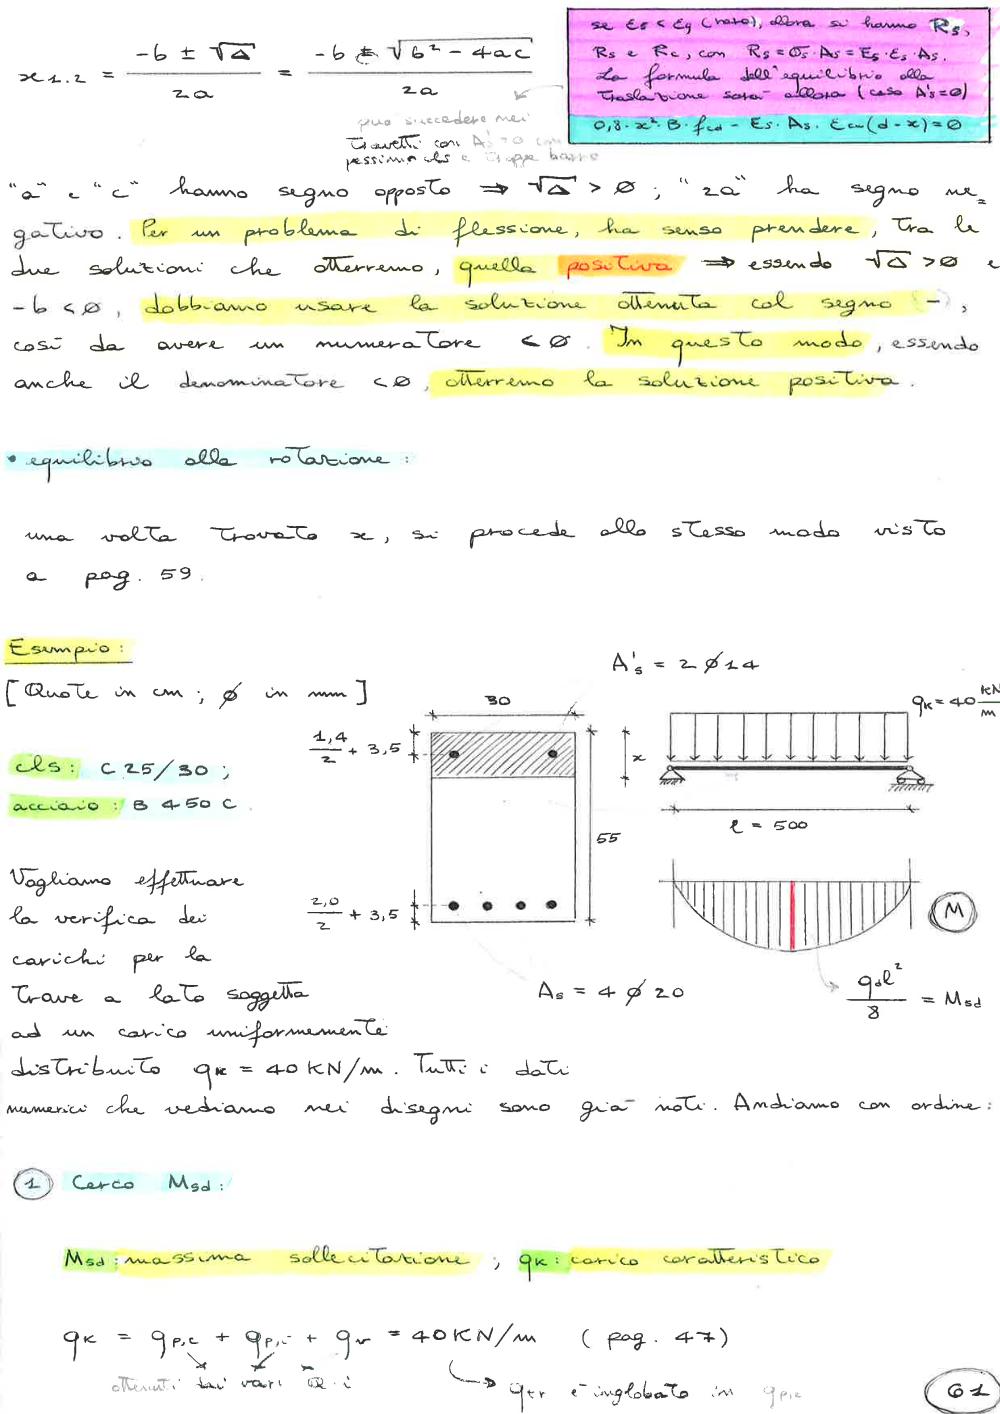 x1.2 = (-b ± √Δ) / 2a = (-b ± √(b² - 4ac)) / 2a
può succedere nei
travetti con A's=0 con
pessimo cls e troppe barre
se εs < εy (raro), allora si hanno Rs,
Rs e Rc, con Rs = σs · As = Es · εs · As.
La formula dell'equilibrio alla
traslazione sarà allora (caso A's=0)
0,8 · x² · B · fcd - Es · As · εcu (d-x) = 0
"a" e "c" hanno segno opposto ⇒ √Δ > 0 ; "2a" ha segno ne=
gativo. Per un problema di flessione, ha senso prendere, tra le
due soluzioni che otterremo, quella positiva ⇒ essendo √Δ > 0 e
-b < 0, dobbiamo usare la soluzione ottenuta col segno (-),
così da avere un numeratore < 0. In questo modo, essendo
anche il denominatore < 0, otterremo la soluzione positiva.
• equilibrio alla rotazione:
una volta trovato x, si procede allo stesso modo visto
a pag. 59.
Esempio:
[Quote in cm ; ø in mm]
cls: C 25/30 ;
acciaio: B 450 C.
A's = 2 ø 14
30
1,4/2 + 3,5
x
55
2,0/2 + 3,5
As = 4 ø 20
qk = 40 kN/m
l = 500
M
qd l²/8 = Msd
Vogliamo effettuare
la verifica dei
carichi per la
trave a lato soggetta
ad un carico uniformemente
distribuito qk = 40 KN/m. Tutti i dati
numerici che vediamo nei disegni sono già noti. Andiamo con ordine:
1 Cerco Msd:
Msd: massima sollecitazione ; qk: carico caratteristico
qk = qp,c + qp,i + qv = 40 KN/m (pag. 47)
ottenuti dai vari Q · i
qtr è inglobato in qp,c
61